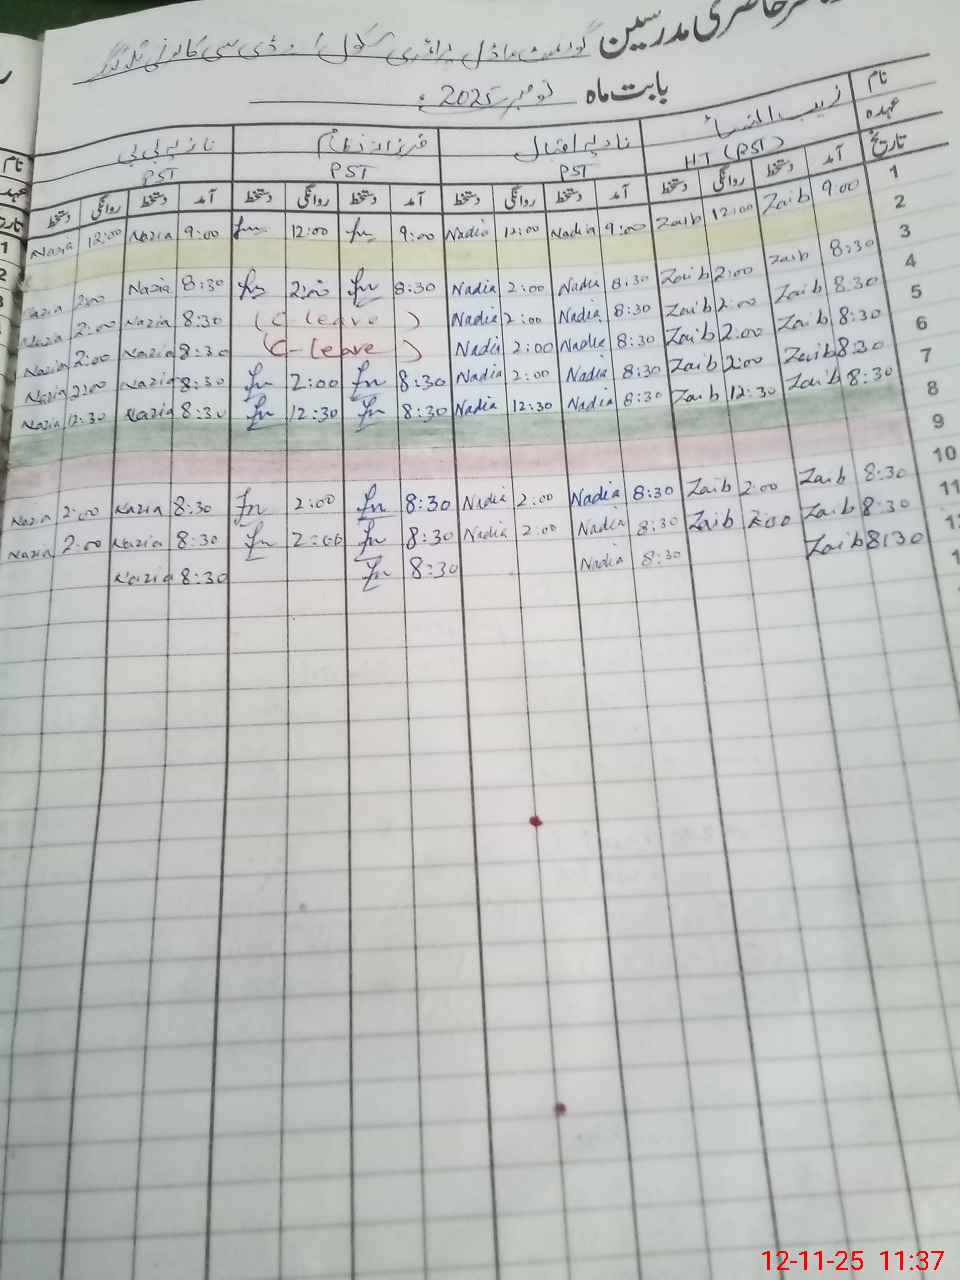 حاضری مدرسین گورنمنٹ ماڈل پرائمری سکول
بابت ماہ نومبر 2025ء
نام زیب النساء نادیہ اقبال فرزانہ نازیہ بی بی
عہدہ HT (PST) PST PST PST
تاریخ آمد دستخط روانگی دستخط آمد دستخط روانگی دستخط آمد دستخط روانگی دستخط آمد دستخط روانگی دستخط
1 9:00 Zaib 12:00 Zaib 9:00 Nadia 12:00 Nadia 9:00 fn 12:00 fn 9:00 Nazia 12:00 Nazia
2
3 8:30 Zaib 2:00 Zaib 8:30 Nadia 2:00 Nadia 8:30 fn 2:00 fn 8:30 Nazia 2:00 Nazia
4 8:30 Zaib 2:00 Zaib 8:30 Nadia 2:00 Nadia (C leave) 8:30 Nazia 2:00 Nazia
5 8:30 Zaib 2:00 Zaib 8:30 Nadia 2:00 Nadia (C-leave) 8:30 Nazia 2:00 Nazia
6 8:30 Zaib 2:00 Zaib 8:30 Nadia 2:00 Nadia 8:30 fn 2:00 fn 8:30 Nazia 2:00 Nazia
7 8:30 Zaib 12:30 Zaib 8:30 Nadia 12:30 Nadia 8:30 fn 12:30 fn 8:30 Nazia 12:30 Nazia
8
9
10 8:30 Zaib 2:00 Zaib 8:30 Nadia 2:00 Nadia 8:30 fn 2:00 fn 8:30 Nazia 2:00 Nazia
11 8:30 Zaib 2:00 Zaib 8:30 Nadia 2:00 Nadia 8:30 fn 2:00 fn 8:30 Nazia 2:00 Nazia
8:30 Zaib 8:30 Nadia 8:30 fn 8:30 Nazia
12-11-25 11:37